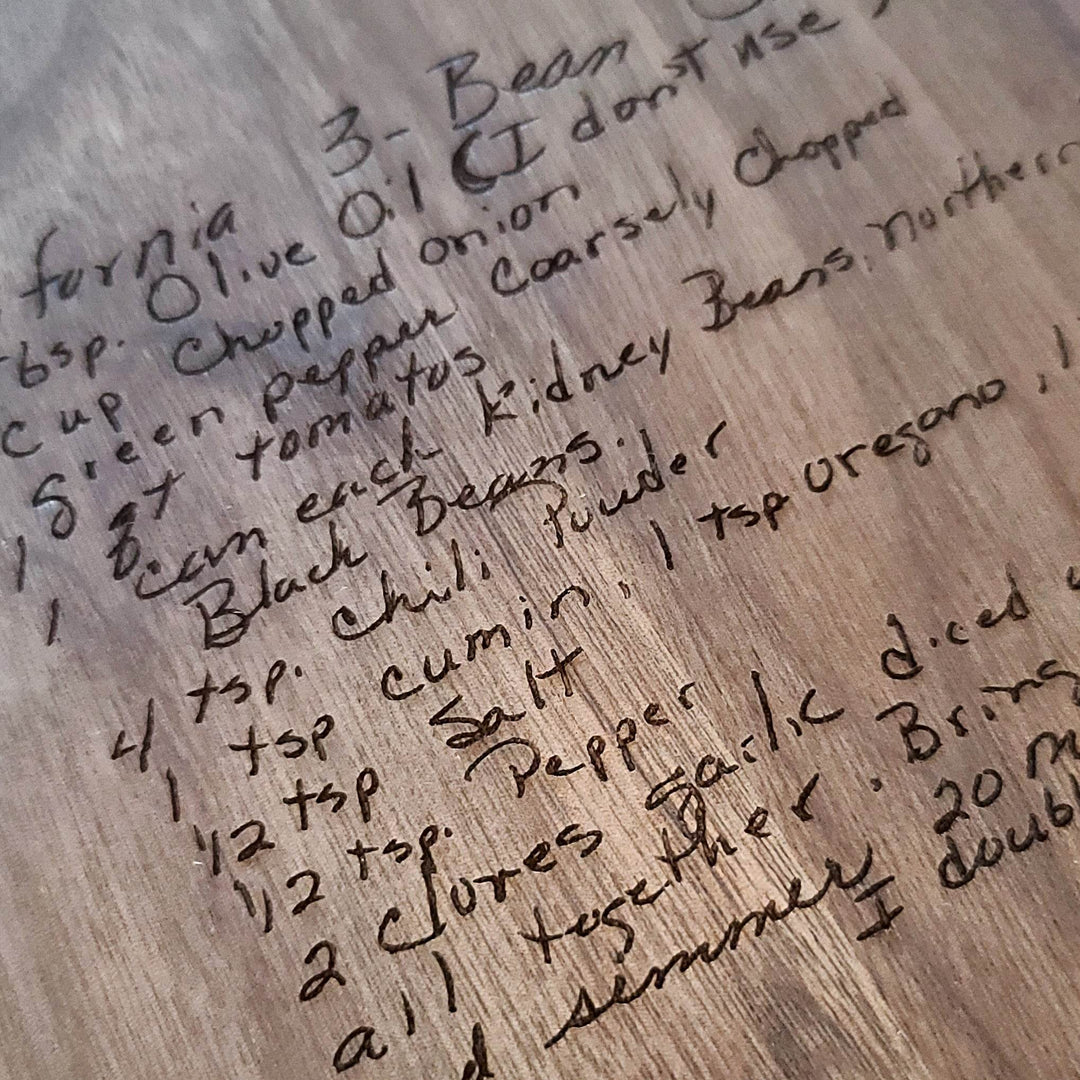 fornia 3- Bean
tbsp. Olive Oil (I don't use,
cup Chopped onion
1 green pepper coarsely chopped
1 qt tomatos
can each kidney Beans, northern
Black Beans.
4 tsp. chili Powder
1 tsp cumin, 1 tsp oregano, 1
1/2 tsp Salt
1/2 tsp. Pepper
2 cloves garlic diced
all together. Bring
simmer 20 m
I doubl